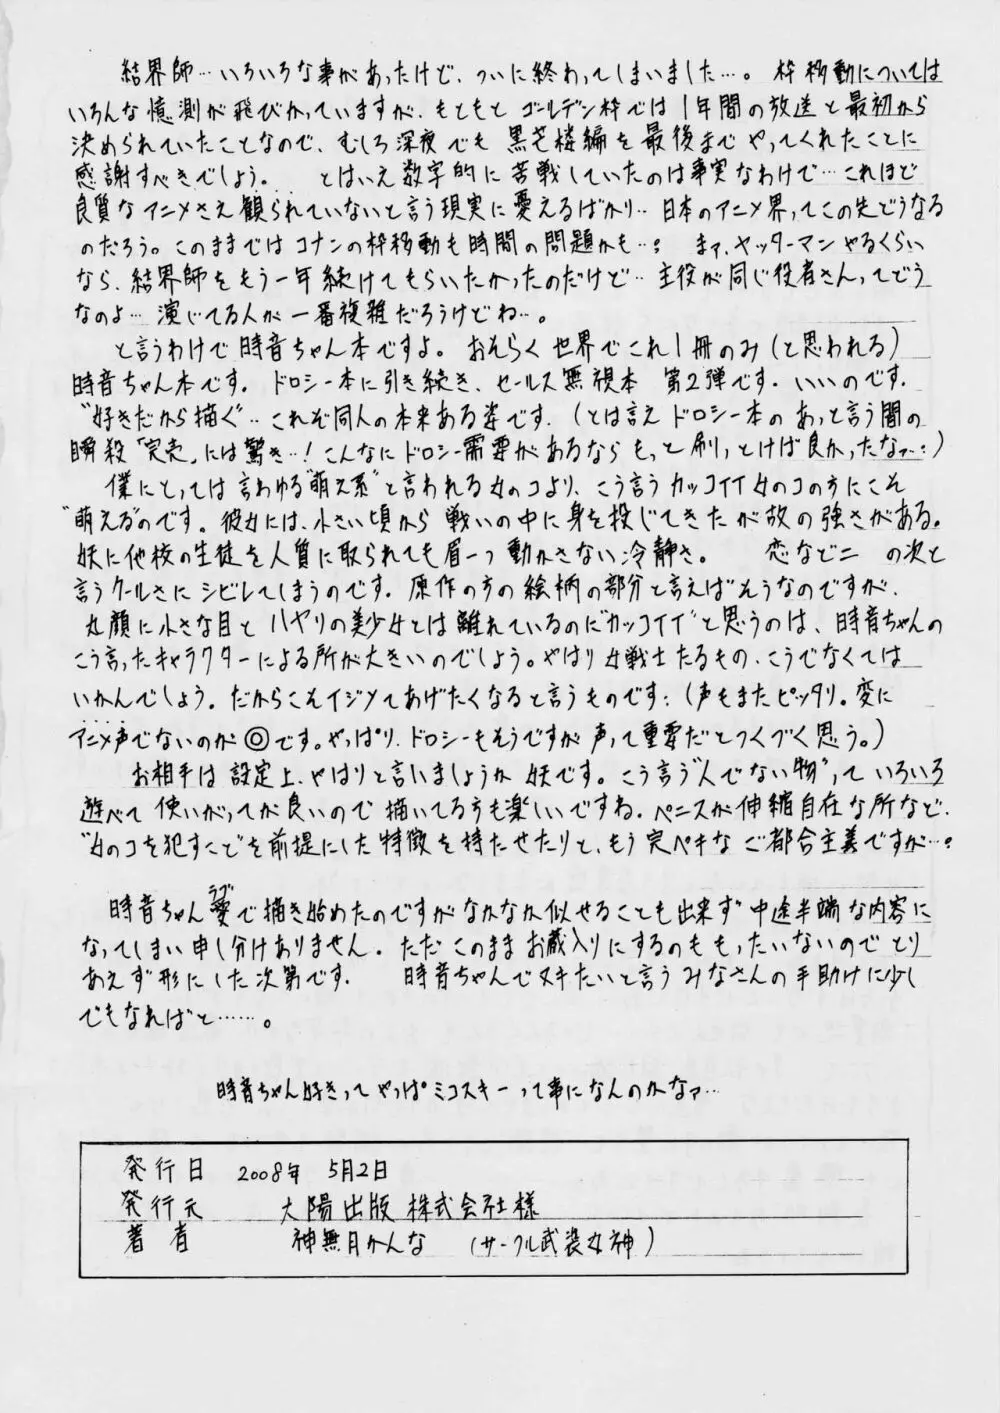 結界師…いろいろな事があったけど、ついに終わってしまいました…。枠移動については
いろんな憶測が飛びかっていますが、もともとゴールデン枠では1年間の放送と最初から
決められていたことなので、むしろ深夜でも黒芒楼編を最後までやってくれたことに
感謝すべきでしょう。 とはいえ数字的に苦戦していたのは事実なわけで…これほど
良質なアニメさえ観られていないと言う現実に憂えるばかり…日本のアニメ界ってこの先どうなる
のだろう。このままではコナンの枠移動も時間の問題かも…? まァ、ヤッターマンやるくらい
なら、結界師をもう一年続けてもらいたかったのだけど…主役が同じ役者さんってどう
なのよ…演じてる人が一番複雑だろうけどね…。
と言うわけで時音ちゃん本ですよ。おそらく世界でこれ1冊のみ(と思われる)
時音ちゃん本です。ドロシー本に引き続き、セールス無視本 第2弾です。いいのです。
"好きだから描ぐ…これぞ同人の本来ある姿です。(とは言えドロシー本のあっと言う間の
瞬殺「完売」には驚き…!こんなにドロシー需要があるならもっと刷っとけば良かったなァ…:)
僕にとっては言わゆる"萌え系"と言われる女のコより、こう言うカッコイイ女のコの方にこそ
"萌える"のです。彼女には、小さい頃から戦いの中に身を投じてきたが故の強さがある。
妖に他校の生徒を人質に取られても眉一つ動かさない冷静さ。 恋など二の次と
言うクールさにシビレてしまうのです。原作の方の絵柄の部分と言えばそうなのですが、
丸顔に小さな目とハヤリの美少女とは離れているのに"カッコイイ"と思うのは、時音ちゃんの
こう言ったキャラクターによる所が大きいのでしょう。やはり女戦士たるもの、こうでなくては
いかんでしょう。だからこそイジメてあげたくなると言うものです:(声もまたピッタリ。変に
アニメ声でないのが◎です。やっぱり、ドロシーもそうですが声って重要だとつくづく思う。)
お相手は設定上、やはりと言いましょうか妖です。こう言う"人でない物"っていろいろ
遊べて使いがってが良いので描いてる方も楽しいですね。ペニスが伸縮自在な所など、
"女のコを犯すこど"を前提にした特徴を持たせたりと、もう完ペキなご都合主義ですが…?
時音ちゃん愛(ラブ)で描き始めたのですがなかなか似せることも出来ず中途半端な内容に
なってしまい申し分けありません。ただこのままお蔵入りにするのももったいないのでとり
あえず形にした次第です。 時音ちゃんでヌキたいと言うみなさんの手助けに少し
でもなればと……。
時音ちゃん好きってやっぱミコスキーって事になんのかなァ…
発行日 2008年 5月2日
発行元 大陽出版株式会社様
著者 神無月かんな (サークル武装女神)